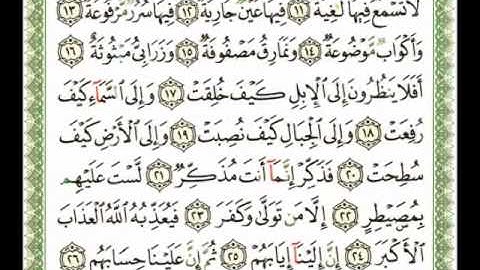 لَّا تَسْمَعُ فِيهَا لَٰغِيَةً ١١ فِيهَا عَيْنٌ جَارِيَةٌ ١٢ فِيهَا سُرُرٌ مَّرْفُوعَةٌ ١٣
وَأَكْوَابٌ مَّوْضُوعَةٌ ١٤ وَنَمَارِقُ مَصْفُوفَةٌ ١٥ وَزَرَابِيُّ مَبْثُوثَةٌ ١٦
أَفَلَا يَنظُرُونَ إِلَى الْإِبِلِ كَيْفَ خُلِقَتْ ١٧ وَإِلَى السَّمَآءِ كَيْفَ
رُفِعَتْ ١٨ وَإِلَى الْجِبَالِ كَيْفَ نُصِبَتْ ١٩ وَإِلَى الْأَرْضِ كَيْفَ
سُطِحَتْ ٢٠ فَذَكِّرْ إِنَّمَآ أَنتَ مُذَكِّرٌ ٢١ لَّسْتَ عَلَيْهِم
بِمُصَيْطِرٍ ٢٢ إِلَّا مَن تَوَلَّىٰ وَكَفَرَ ٢٣ فَيُعَذِّبُهُ اللَّهُ الْعَذَابَ
الْأَكْبَرَ ٢٤ إِنَّ إِلَيْنَآ إِيَابَهُمْ ٢٥ ثُمَّ إِنَّ عَلَيْنَا حِسَابَهُم ٢٦